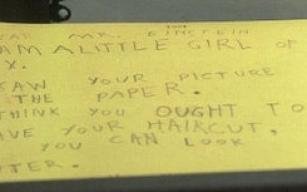 MR. EINSTEIN
AM A LITTLE GIRL OF
X.
AW YOUR PICTURE
THE PAPER.
THINK YOU OUGHT TO
AVE YOUR HAIRCUT,
YOU CAN LOOK
TTER.